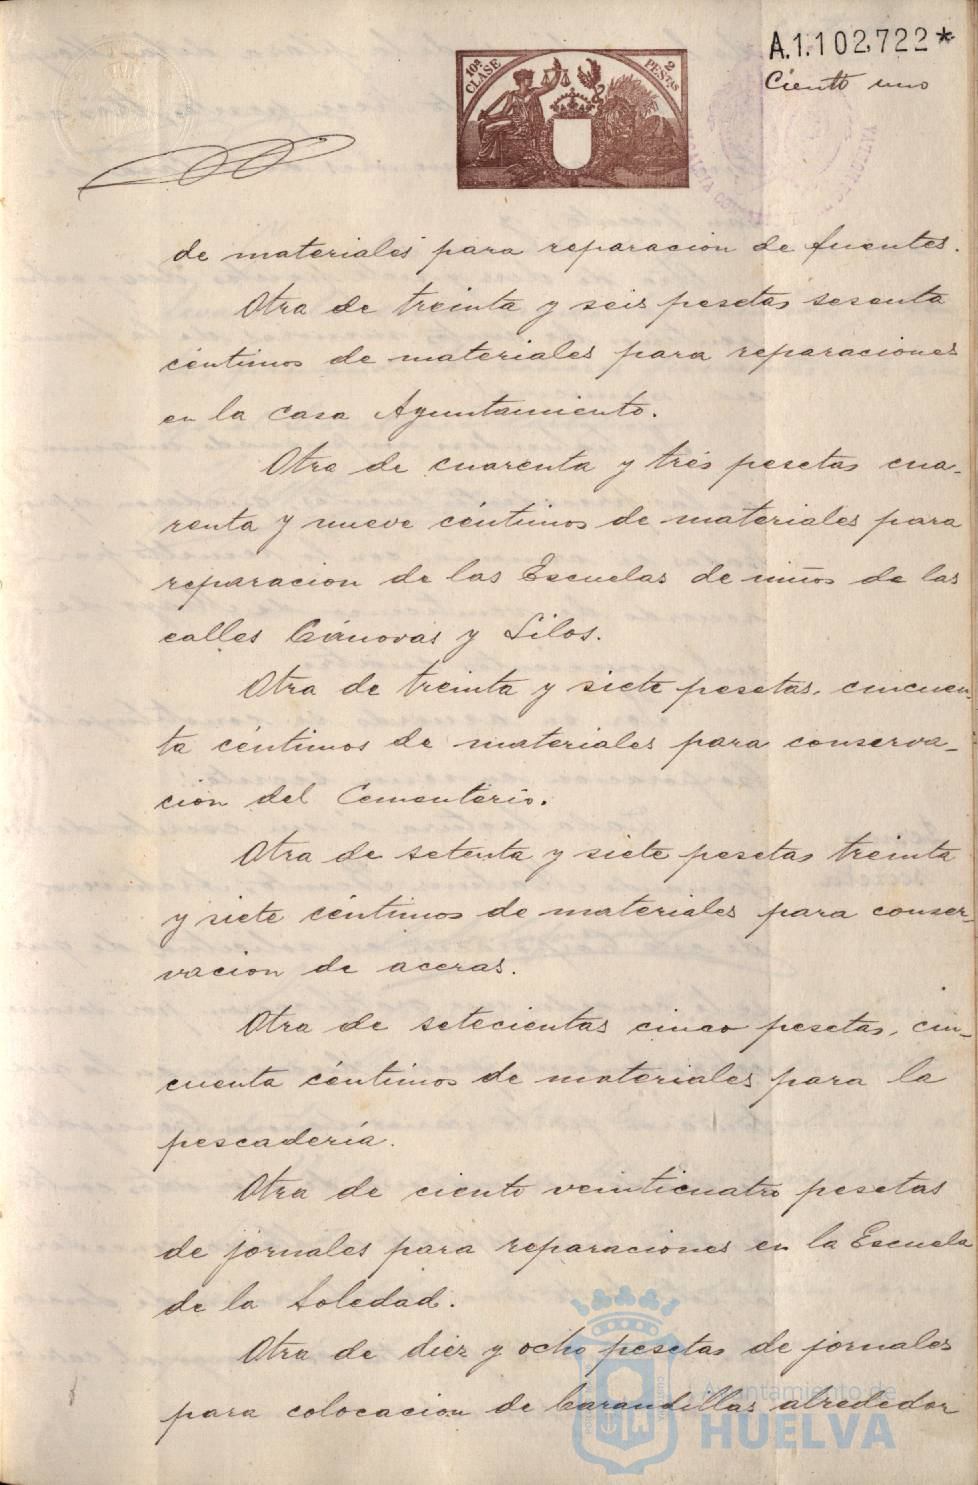 A.1.102,722*
Ciento uno
10ª CLASE
2 PESTAS
de materiales para reparacion de fuentes.
Otra de treinta y seis pesetas sesenta
céntimos de materiales para reparaciones
en la casa Ayuntamiento.
Otra de cuarenta y tres pesetas cua-
renta y nueve céntimos de materiales para
reparacion de las Escuelas de niños de las
calles Cánovas y Silos.
Otra de treinta y siete pesetas, cincuen-
ta céntimos de materiales para conserva-
cion del Cementerio.
Otra de setenta y siete pesetas treinta
y siete céntimos de materiales para conser-
vacion de aceras.
Otra de setecientas cinco pesetas, cin-
cuenta céntimos de materiales para la
pescadería.
Otra de ciento veinticuatro pesetas
de jornales para reparaciones en la Escuela
de la Soledad.
Otra de diez y ocho pesetas de jornales
para colocacion de barandillas alrededor
Ayuntamiento de
HUELVA